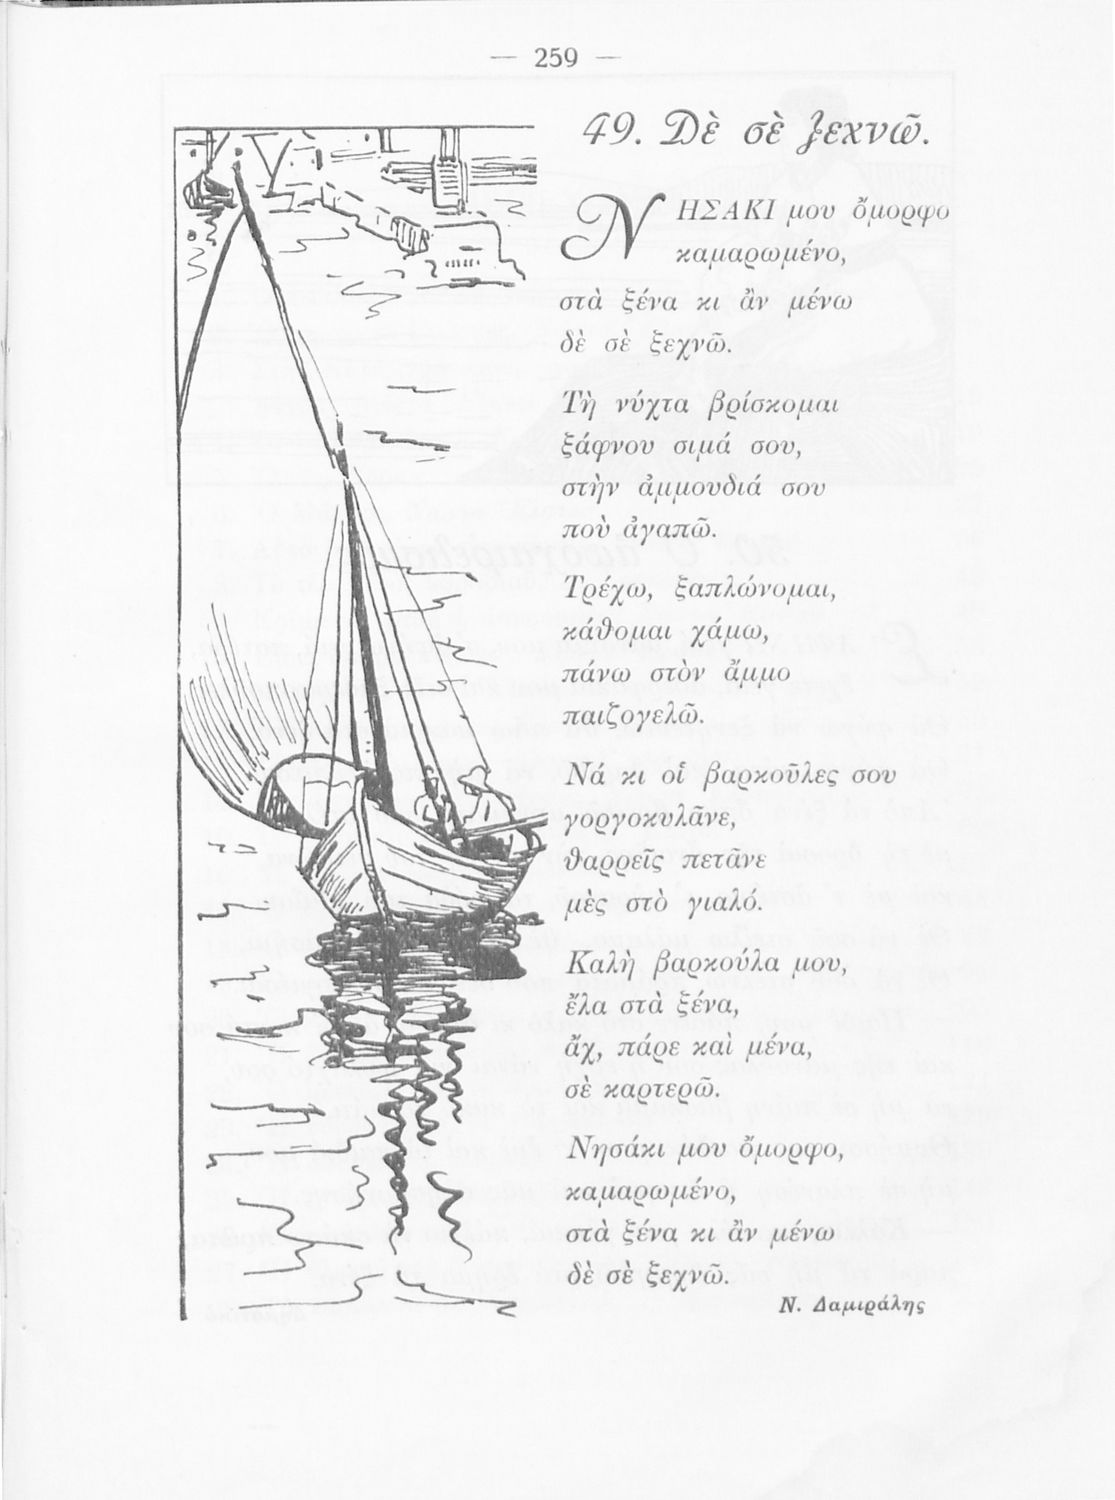 — 259 —
49. Δὲ σὲ ξεχνῶ.
ΝΗΣΑΚΙ μου ὄμορφο
καμαρωμένο,
στὰ ξένα κι ἂν μένω
δὲ σὲ ξεχνῶ.
Τὴ νύχτα βρίσκομαι
ξάφνου σιμά σου,
στὴν ἀμμουδιά σου
ποὺ ἀγαπῶ.
Τρέχω, ξαπλώνομαι,
κάθομαι χάμω,
πάνω στὸν ἄμμο
παιζογελῶ.
Νά κι οἱ βαρκοῦλες σου
γοργοκυλᾶνε,
θαρρεῖς πετᾶνε
μὲς στὸ γιαλό.
Καλὴ βαρκούλα μου,
ἔλα στὰ ξένα,
ἄχ, πάρε καὶ μένα,
σὲ καρτερῶ.
Νησάκι μου ὄμορφο,
καμαρωμένο,
στὰ ξένα κι ἂν μένω
δὲ σὲ ξεχνῶ.
Ν. Δαμιράλης